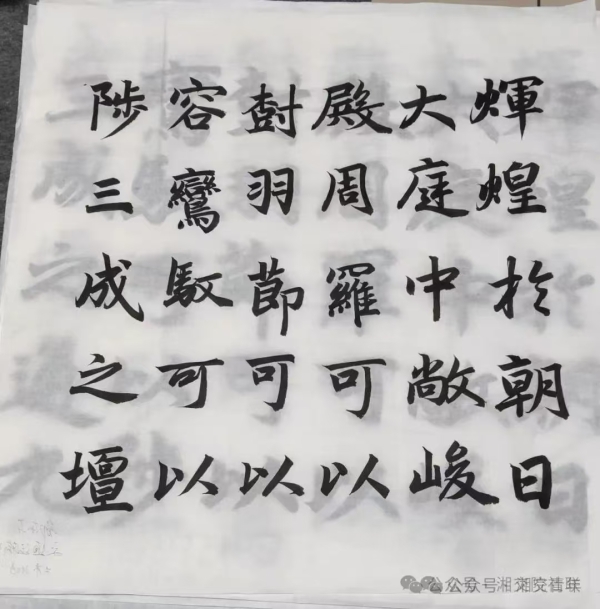 煇煌於朝日
大庭中敞峻
殿周羅可以
尌羽莭可以
容鸞馭可以
陟三成之壇
公众号